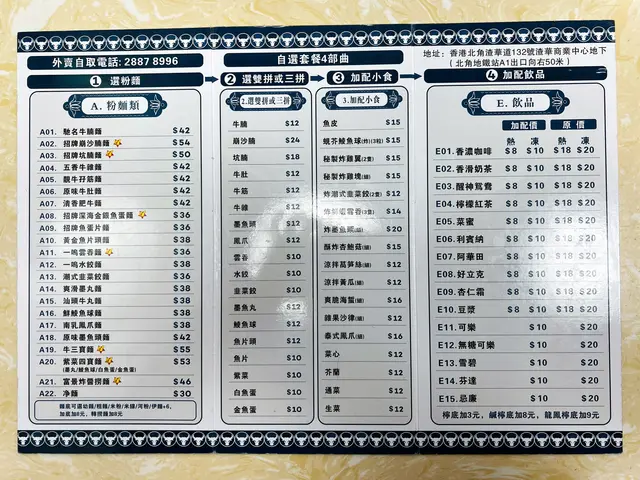 外賣自取電話: 2887 8996
自選套餐4部曲
地址: 香港北角渣華道132號渣華商業中心地下
( 北角地鐵站A1出口向右50米 )
1 選粉麵
2 選雙拼或三拼
3 加配小食
4 加配飲品
A. 粉麵類
A01. 馳名牛腩麵 $42
A02. 招牌崩沙腩麵 $54
A03. 招牌坑腩麵 $50
A04. 五香牛雜麵 $42
A05. 靚牛孖筋麵 $42
A06. 原味牛肚麵 $42
A07. 清香肥牛麵 $42
A08. 招牌深海金銀魚蛋麵 $36
A09. 招牌魚蛋片麵 $36
A10. 黃金魚片頭麵 $38
A11. 一嗚雲吞麵 $36
A12. 一嗚水餃麵 $38
A13. 潮式韭菜餃麵 $36
A14. 爽滑墨丸麵 $38
A15. 汕頭牛丸麵 $38
A16. 鮮鯪魚球麵 $38
A17. 南乳鳳爪麵 $38
A18. 原味墨魚頭麵 $42
A19. 牛三寶麵 $55
A20. 紫菜四寶麵 $53
(墨丸/鯪魚球/白魚蛋/金魚蛋)
A21. 富景炸醬撈麵 $46
A22. 净麵 $30
麵底可選幼麵/粗麵/米粉/米線/河粉/伊麵+6,
加底加8元, 轉撈麵加8元
2.選雙拼或三拼
牛腩 $12
崩沙腩 $24
坑腩 $18
牛肚 $12
牛筋 $12
牛雜 $12
墨魚頭 $12
鳳爪 $12
雲吞 $10
水餃 $10
韭菜餃 $10
墨魚丸 $12
鯪魚球 $12
魚片頭 $12
魚片 $10
紫菜 $10
白魚蛋 $10
金魚蛋 $10
3.加配小食
魚皮 $15
蜆芥鯪魚球(炸)(3粒) $15
秘製炸雞翼(2隻) $15
秘製炸雞塊(細) $15
炸潮式韭菜餃(2隻) $12
炸鮮蝦雲吞(3隻) $14
炸墨魚鬚(細) $20
酥炸杏鮑菇(細) $15
涼拌萵笋絲(細) $12
涼拌黃瓜(細) $12
爽脆海蜇(細) $16
雜果沙律(細) $12
泰式鳳爪(細) $16
菜心 $12
芥蘭 $12
通菜 $12
生菜 $12
E. 飲品
加配價 原價
熱 凍 熱 凍
E01. 香濃咖啡 $8 $10 $18 $20
E02. 香滑奶茶 $8 $10 $18 $20
E03. 醒神鴛鴦 $8 $10 $18 $20
E04. 檸檬紅茶 $8 $10 $18 $20
E05. 菜蜜 $8 $10 $18 $20
E06. 利賓納 $8 $10 $18 $20
E07. 阿華田 $8 $10 $18 $20
E08. 好立克 $8 $10 $18 $20
E09. 杏仁霜 $8 $10 $18 $20
E10. 豆漿 $8 $10 $18 $20
E11. 可樂 $10 $20
E12. 無糖可樂 $10 $20
E13. 雪碧 $10 $20
E14. 芬達 $10 $20
E15. 忌廉 $10 $20
檸底加3元, 鹹檸底加8元, 龍鳳檸底加9元